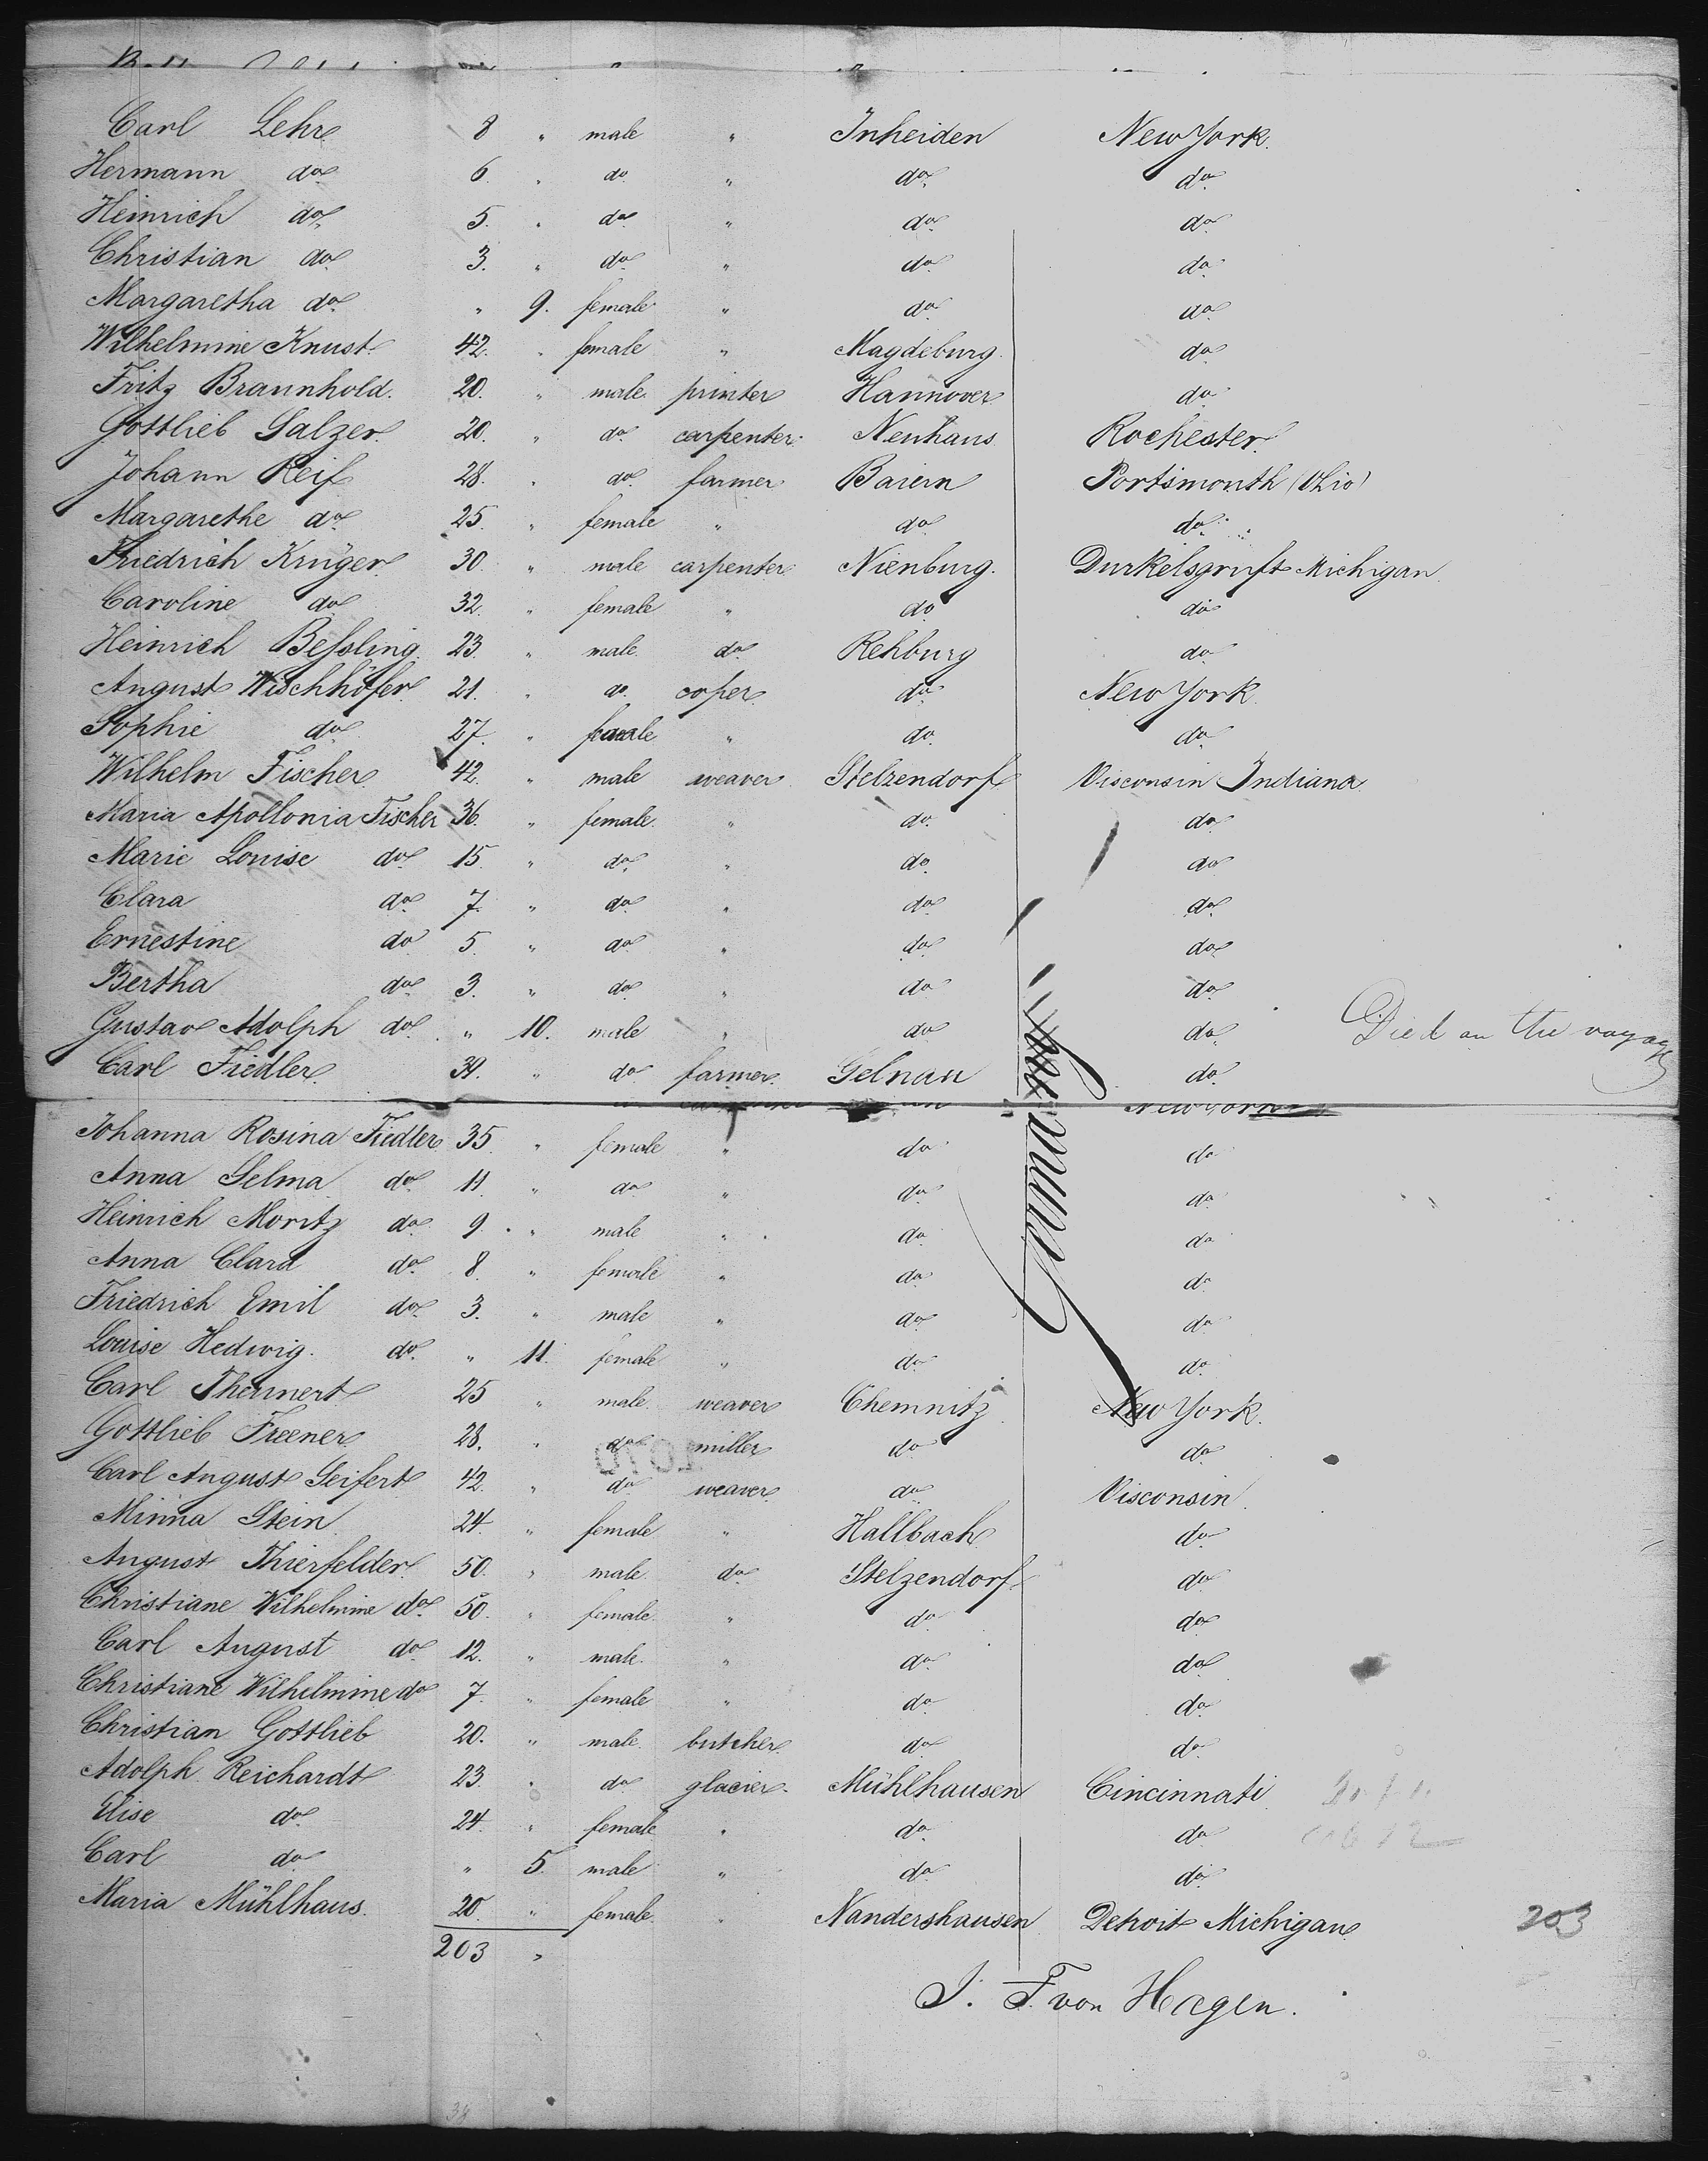 Carl Lehr 8 " male " Inheiden New York.
Hermann do 6. " do " do do
Heinrich do 5. " do " do do
Christian do 3. " do " do do
Margaretha do " 9. female " do do
Wilhelmine Knust. 42. " female " Magdeburg. do
Fritz Braunhold. 20. " male printer Hannover do
Gottlieb Salzer. 20. " do carpenter Neuhaus Rochester.
Johann Reif 28. " do farmer Baiern Portsmouth (Ohio)
Margarethe do 25. " female " do do
Friedrich Krüger. 30. " male carpenter Nienburg. Durkelsgruft Michigan
Caroline do 32. " female " do do
Heinrich Beßling. 23. " male do Rehburg do
August Wischhöfer 21. " do coper do New York.
Sophie do 27. " female " do do
Wilhelm Fischer 42. " male weaver Stelzendorf Visconsin Indiana
Maria Apollonia Fischer 36. " female " do do
Marie Louise do 15 " do " do do
Clara do 7. " do " do do
Ernestine do 5 " do " do do
Bertha do 3. " do " do do
Gustav Adolph do " 10. male " do do Died on the voyage
Carl Fiedler. 34. " do farmer Gelnau do
New York
Johanna Rosina Fiedler 35 " female " do do
Anna Selma do 11 " do " do do
Heinrich Moritz do 9. " male " do do
Anna Clara do 8. " female " do do
Friedrich Emil do 3. " male " do do
Louise Hedwig. do " 11. female " do do
Carl Themert 25 " male weaver Chemnitz New York.
Gottlieb Freener 28. " do miller do do
Carl August Seifert 42. " do weaver do Visconsin
Minna Stein 24. " female " Hallbach do
August Thierfelder 50. " male do Stelzendorf do
Christiane Wilhelmine do 50. " female " do do
Carl August do 12. " male " do do
Christiane Wilhelmine do 7. " female " do do
Christian Gottlieb 20. " male butcher do do
Adolph Reichardt 23. " do glacier Mühlhausen Cincinnati
Elise do 24. " female " do do
Carl do " 5. male " do do
Maria Mühlhaus. 20. " female " Nandershausen Detroit Michigan 203
203 "
J. F. von Hagen.
Germany
1070